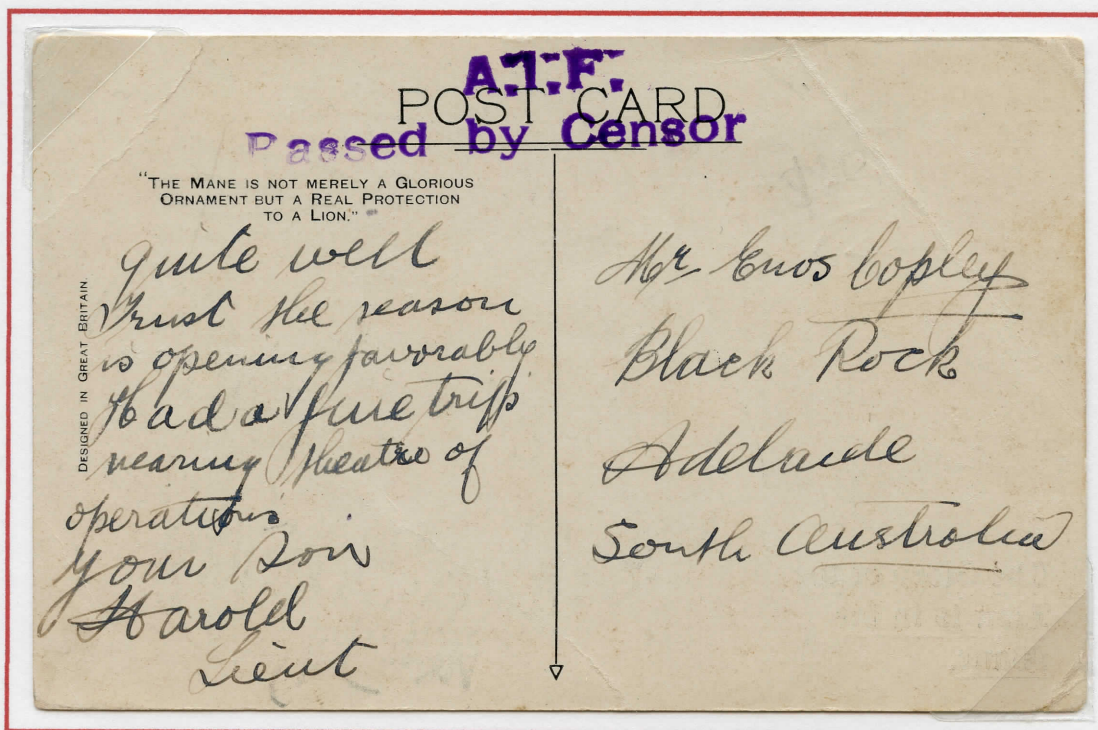 A.I.F.
POST CARD
Passed by Censor
"THE MANE IS NOT MERELY A GLORIOUS
ORNAMENT BUT A REAL PROTECTION
TO A LION."
DESIGNED IN GREAT BRITAIN.
quite well
Trust the season
is opening favorably
Had a fine trip
nearing theatre of
operations
your son
Harold
Lieut
Mr Enos Copley
Black Rock
Adelaide
South Australia